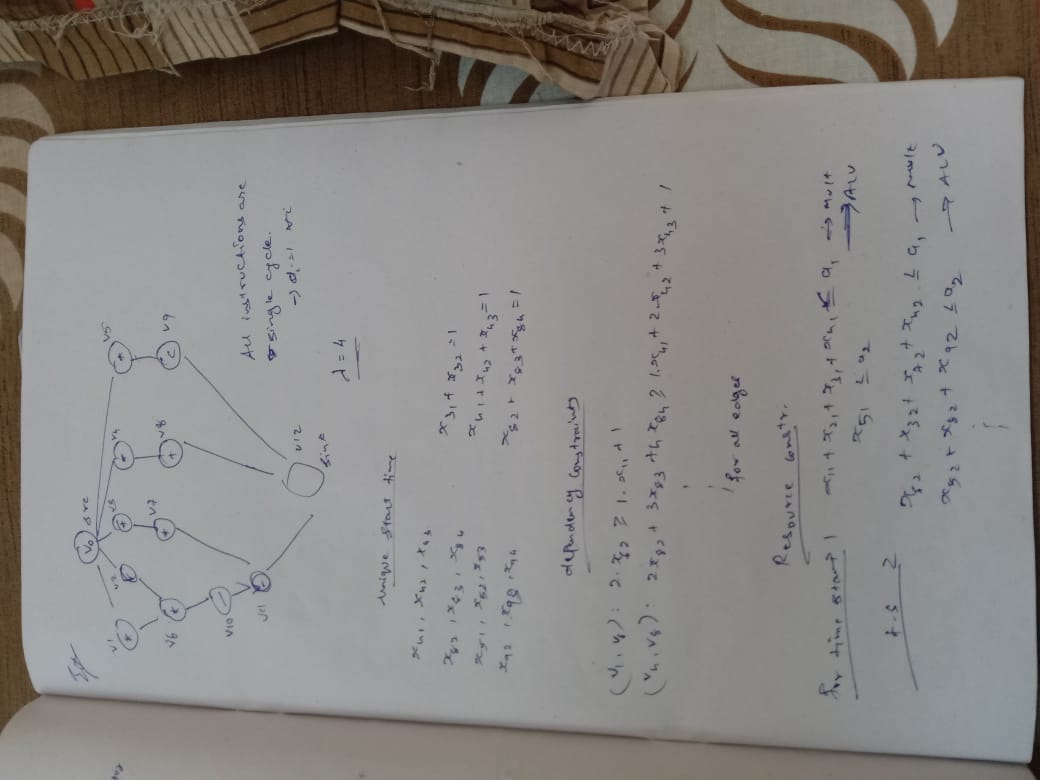 v0 src
v1
v2
v3
v4
v5
v6
v7
v8
v9
v10
v11
v12
sink
All instructions are
single cycle.
→ di = 1 ∀i
λ = 4
unique start time
x41, x42, x43
x31 + x32 = 1
x82, x83, x84
x41 + x42 + x43 = 1
x51, x52, x53
x82 + x83 + x84 = 1
dependency constraints
(v1, v6): 2·x62 ≥ 1·x11 + 1
(v4, v8): 2x82 + 3x83 + 4x84 ≥ 1·x41 + 2x42 + 3x43 + 1
for all edges
Resource constr.
For time start 1 x11 + x21 + x31 + x41 ≤ a1 → mult
x51 ≤ a2 → ALU
t-s 2
x62 + x32 + x72 + x42 ≤ a1 → mult
x52 + x82 + x92 ≤ a2 → ALU